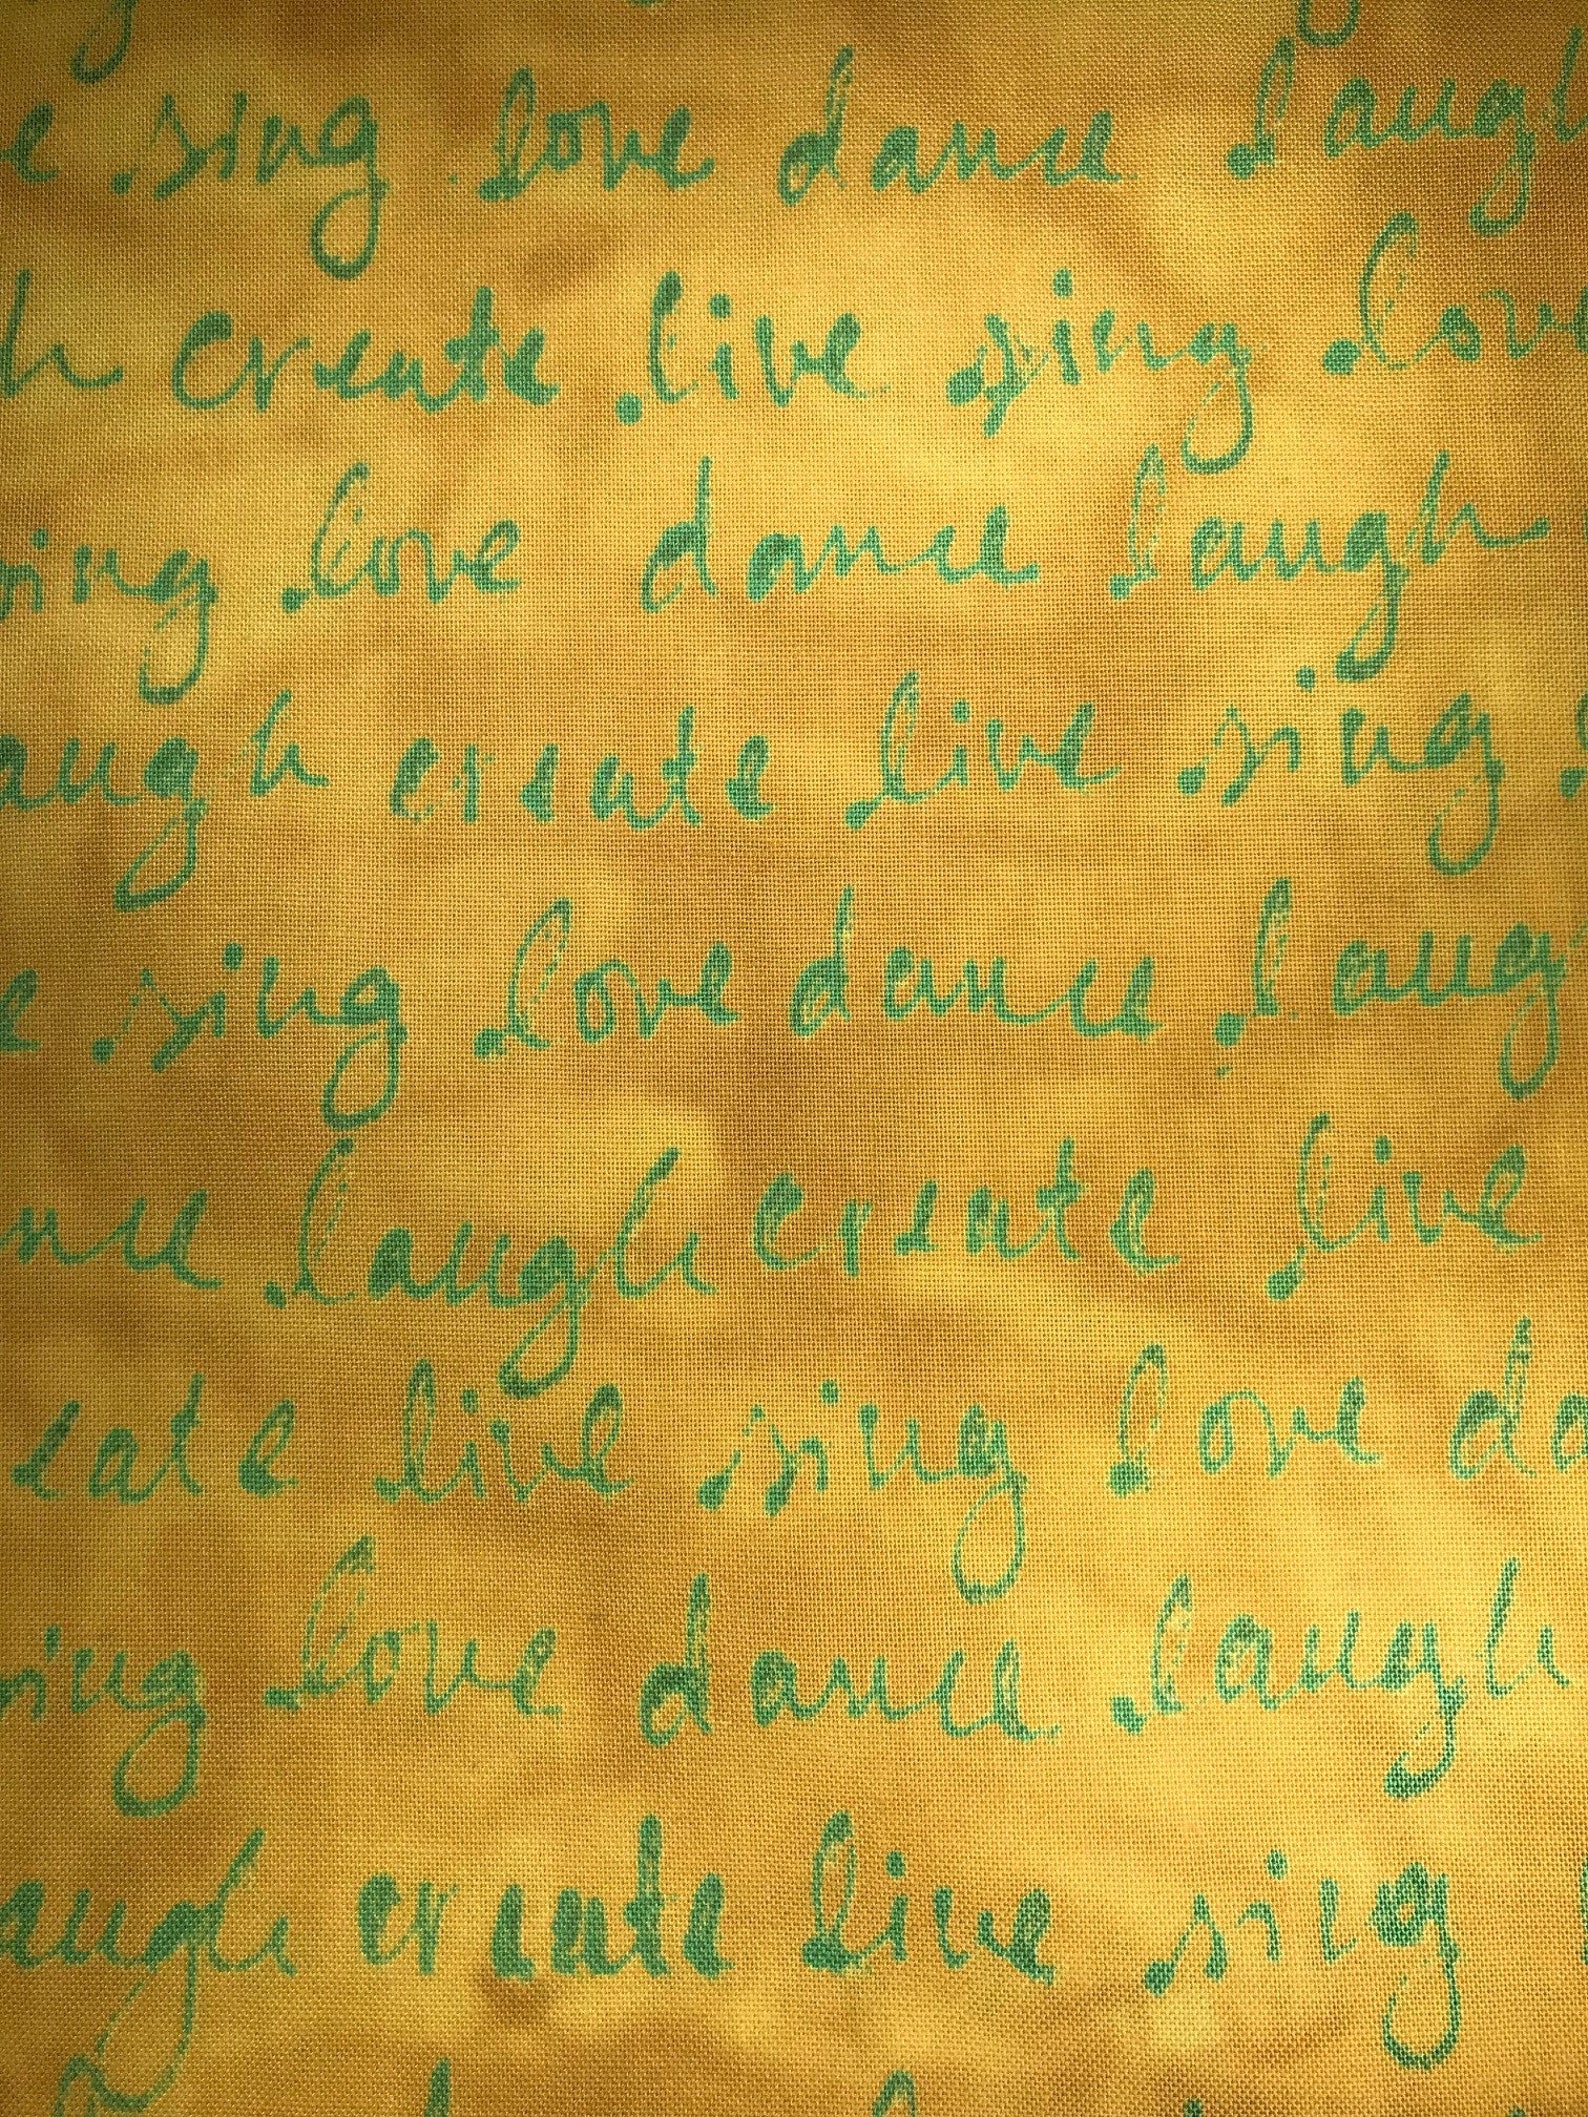 e sing love dance laugh
h create live sing love
sing love dance laugh
augh create live sing
e sing love dance laug
nce laugh create live
eate live sing love da
sing love dance laugh
augh create live sing